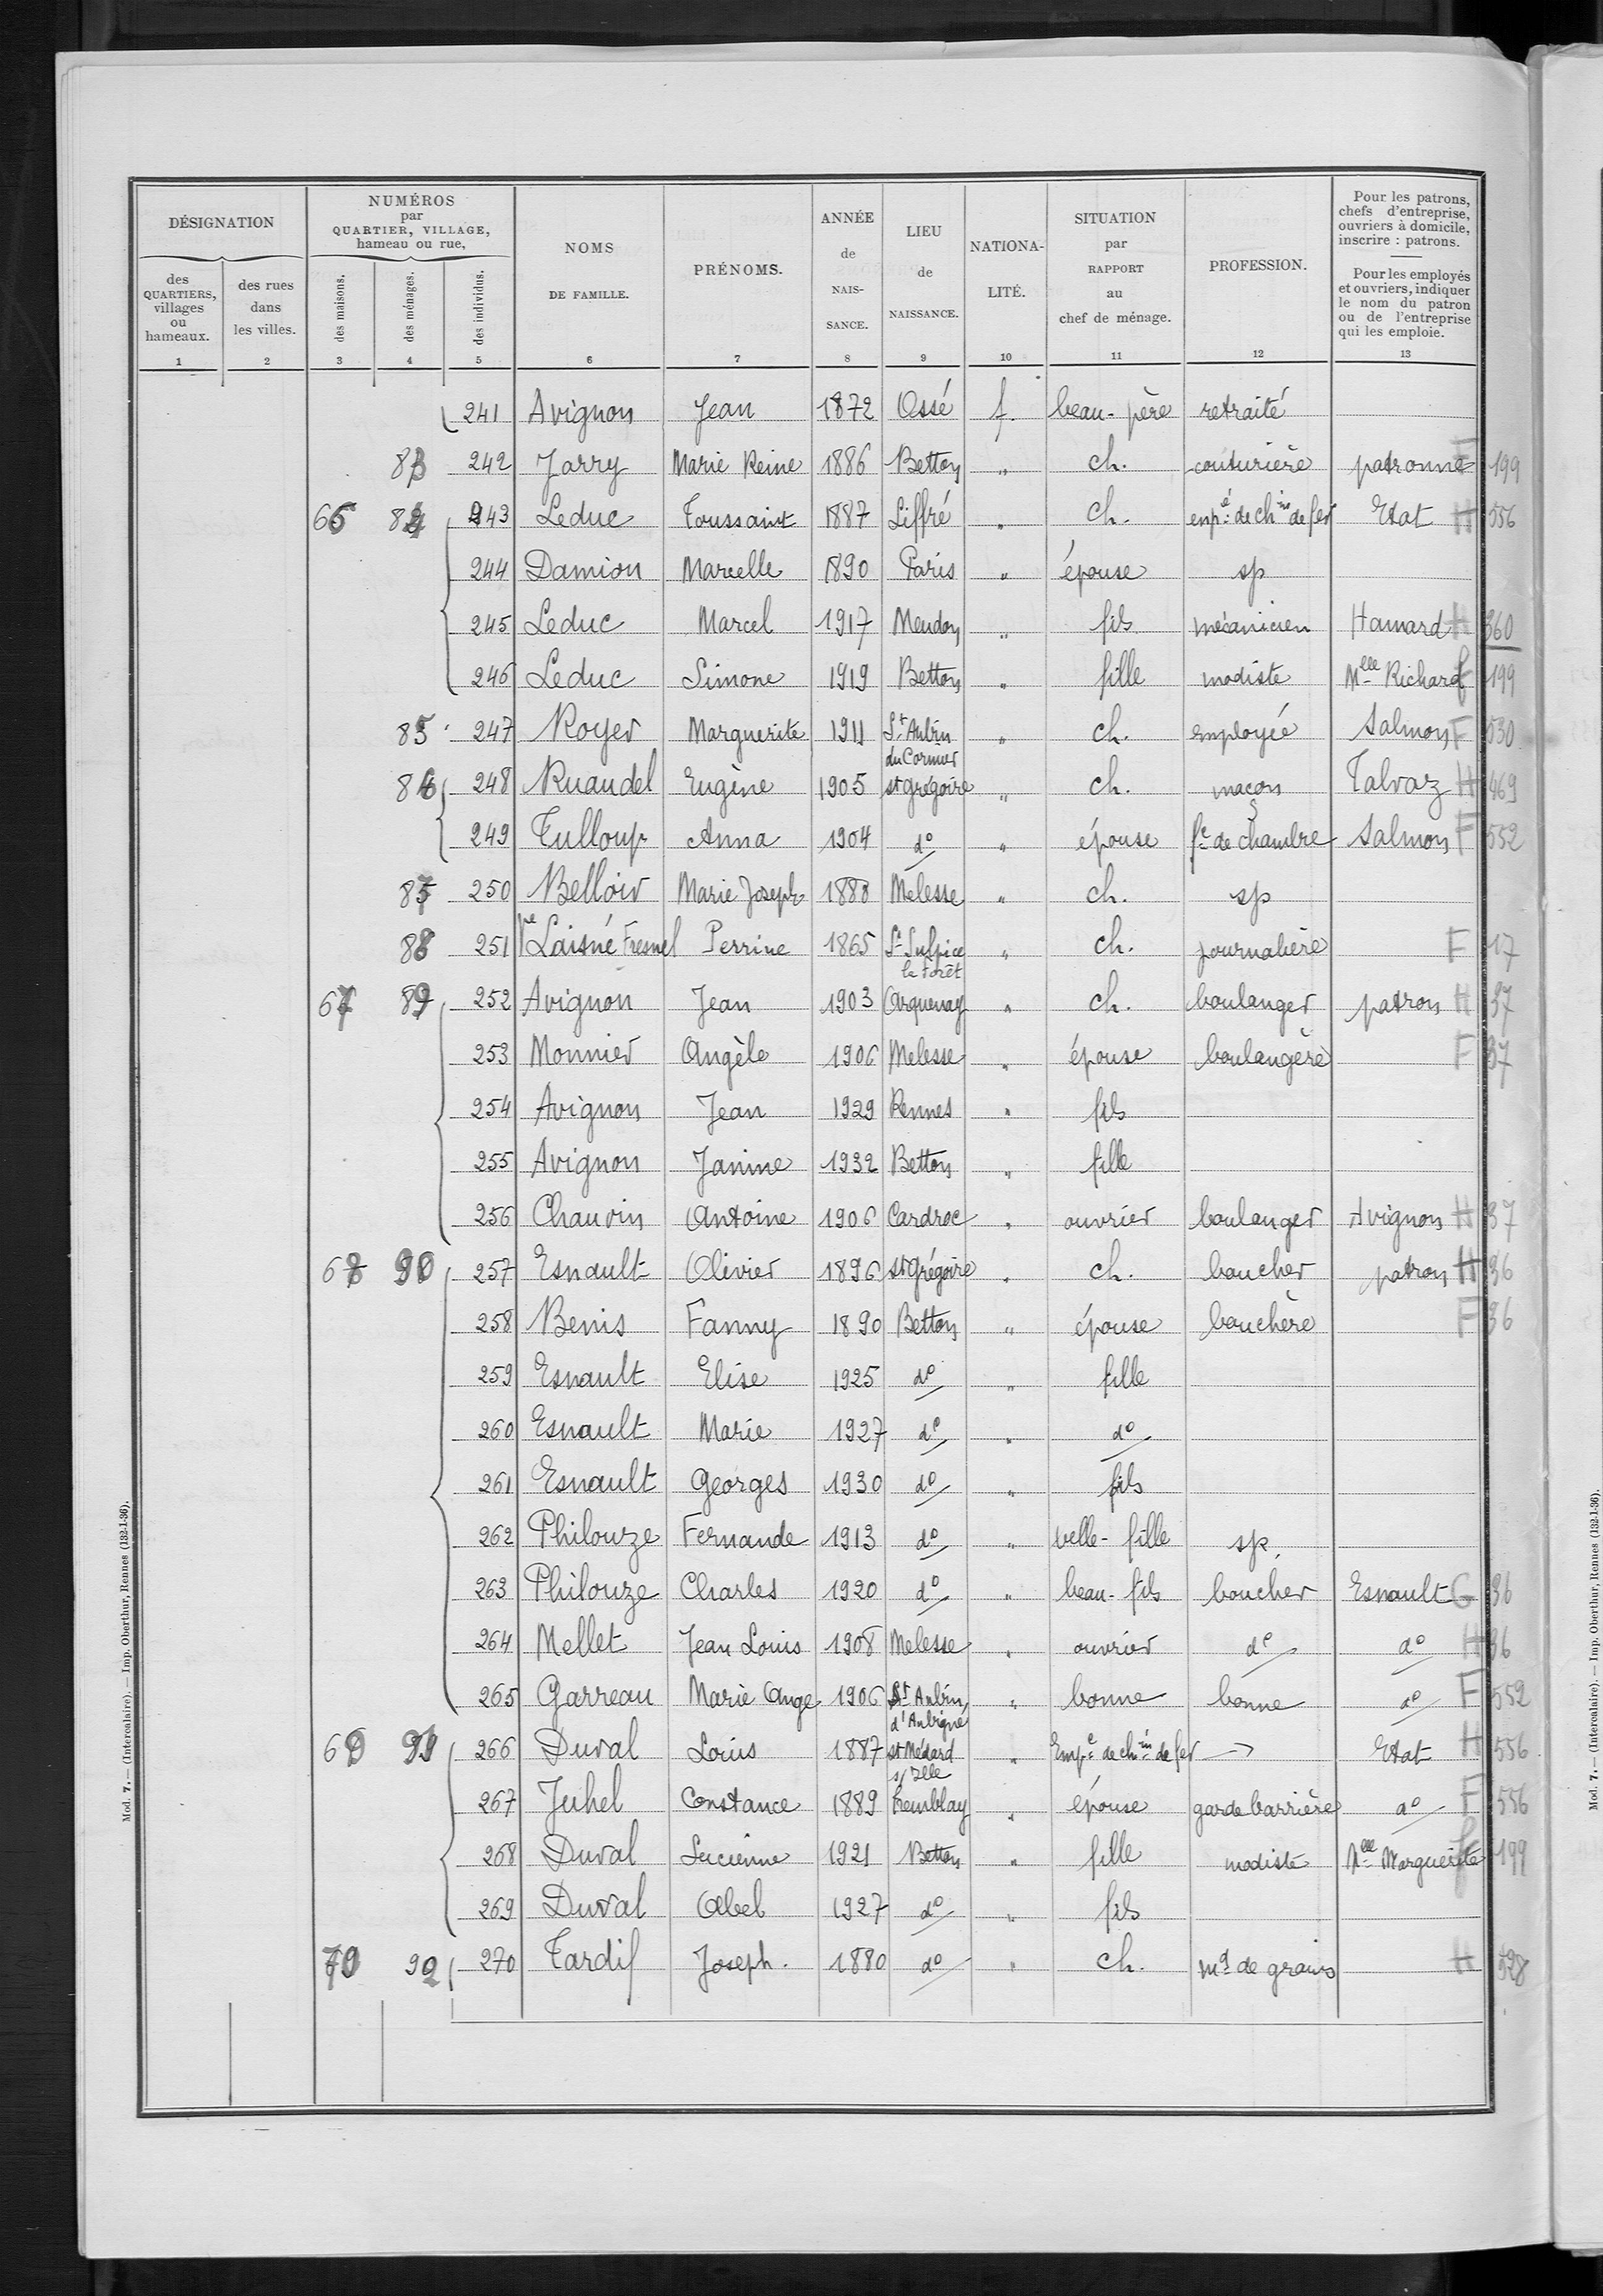 DÉSIGNATION
NUMÉROS
par
QUARTIER, VILLAGE,
hameau ou rue,
NOMS
DE FAMILLE.
PRÉNOMS.
ANNÉE
de
NAIS-
SANCE.
LIEU
de
NAISSANCE.
NATIONA-
LITÉ.
SITUATION
par
RAPPORT
au
chef de ménage.
PROFESSION.
Pour les patrons,
chefs d'entreprise,
ouvriers à domicile,
inscrire : patrons.
Pour les employés
et ouvriers, indiquer
le nom du patron
ou de l'entreprise
qui les emploie.
des
QUARTIERS,
villages
ou
hameaux.
des rues
dans
les villes.
des maisons.
des ménages.
des individus.
1 2 3 4 5 6 7 8 9 10 11 12 13
241 Avignon Jean 1872 Ossé f. beau-père retraité
83 242 Jarry Marie Reine 1886 Betton " ch. couturière patronne F 199
66 84 243 Leduc Toussaint 1887 Liffré " ch. empé de chin de fer Etat H 556
244 Damion Marcelle 1890 Paris " épouse sp
245 Leduc Marcel 1917 Meudon " fils mécanicien Hamard H 360
246 Leduc Simone 1919 Betton " fille modiste Melle Richard f 199
85 247 Royer Marguerite 1911 St Aubin du Cormier " ch. employée Salmon F 530
86 248 Ruaudel Eugène 1905 St Grégoire " ch. maçon Talvaz H 469
249 Tulloup Anna 1904 do " épouse fe de chambre Salmon F 552
87 250 Belloir Marie Joseph 1888 Melesse " ch. sp
88 251 Ve Laisné Fresnel Perrine 1865 St Sulpice la Forêt " ch. journalière F 17
67 89 252 Avignon Jean 1903 Arquenay " ch. boulanger patron H 37
253 Monnier Angèle 1906 Melesse " épouse boulangère F 37
254 Avignon Jean 1929 Rennes " fils
255 Avignon Janine 1932 Betton " fille
256 Chauvin Antoine 1906 Cardroc " ouvrier boulanger Avignon H 37
68 90 257 Esnault Olivier 1896 St Grégoire " ch. boucher patron H 36
258 Benis Fanny 1890 Betton " épouse bouchère F 36
259 Esnault Elise 1925 do " fille
260 Esnault Marie 1927 do " do
261 Esnault Georges 1930 do " fils
262 Philouze Fernande 1913 do " belle-fille sp.
263 Philouze Charles 1920 do " beau-fils boucher Esnault G 36
264 Mellet Jean Louis 1908 Melesse " ouvrier do do H 36
265 Garreau Marie Ange 1906 St Aubin d'Aubigné " bonne bonne do F 552
69 91 266 Duval Louis 1887 St Médard s/ Ille " Empé de chin de fer → Etat H 556
267 Juhel Constance 1889 Tremblay " épouse garde barrière do F 556
268 Duval Lucienne 1921 Betton " fille modiste Melle Marguerite f 199
269 Duval Abel 1927 do " fils
70 92 270 Tardif Joseph. 1880 do " ch. md de grains H 528
Mod. 7. — (Intercalaire). — Imp. Oberthur, Rennes (132-1-36).
Mod. 7. — (Intercalaire). — Imp. Oberthur, Rennes (132-1-36).